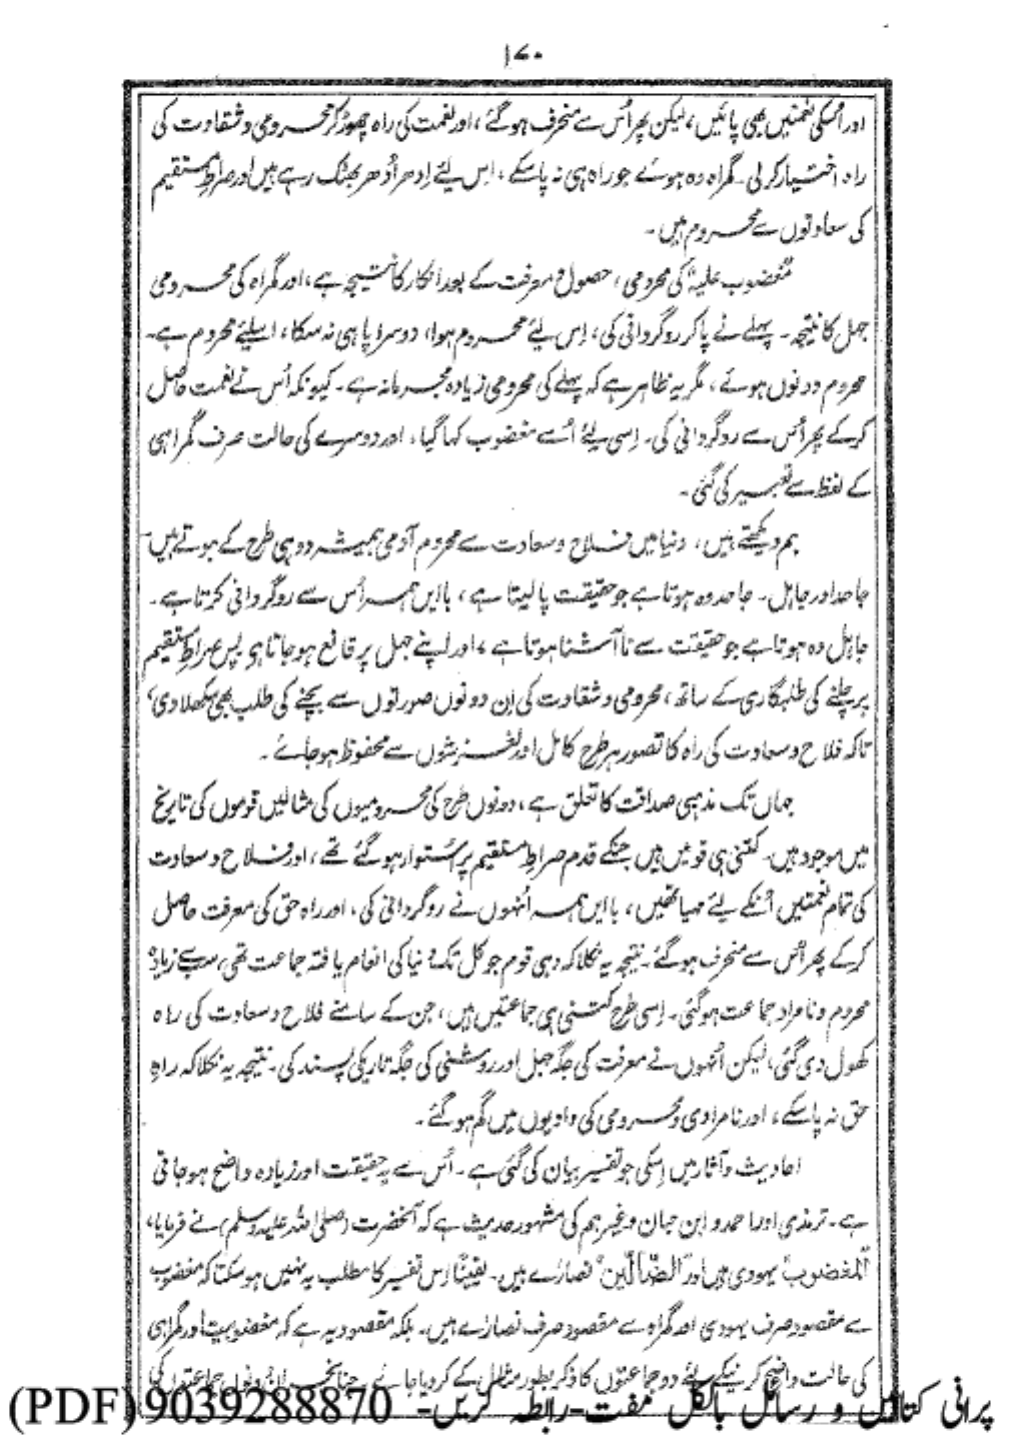 ۱۷۰
اور اسکی نعمتیں بھی پائیں، لیکن پھر اُس سے منحرف ہوگئے، اور نعمت کی راہ چھوڑ کر محرومی و شقاوت کی
راہ اختیار کرلی۔ گمراہ وہ ہوئے جو راہ ہی نہ پاسکے، اس لئے اِدھر اُدھر بھٹک رہے ہیں اور صراطِ مستقیم
کی سعادتوں سے محروم ہیں۔
"مغضوب علیہ" کی محرومی، حصول و معرفت کے بعد انکار کا نتیجہ ہے، اور گمراہ کی محرومی
جہل کا نتیجہ۔ پہلے نے پاکر روگردانی کی، اِس لئے محروم ہوا، دوسرا پا ہی نہ سکا، اسلیئے محروم ہے۔
محروم دونوں ہوئے، مگر یہ ظاہر ہے کہ پہلے کی محرومی زیادہ مجرمانہ ہے۔ کیونکہ اُس نے نعمت حاصل
کرکے پھر اُس سے روگردانی کی۔ اِسی لئے اُسے مغضوب کہا گیا، اور دوسرے کی حالت صرف گمراہی
کے لفظ سے تعبیر کی گئی۔
ہم دیکھتے ہیں، دنیا میں فلاح و سعادت سے محروم آدمی ہمیشہ دو ہی طرح کے ہوتے ہیں۔
جاحد اور جاہل۔ جاحد وہ ہوتا ہے جو حقیقت پالیتا ہے، بااین ہمہ اُس سے روگردانی کرتا ہے۔
جاہل وہ ہوتا ہے جو حقیقت سے ناآشنا ہوتا ہے، اور اپنے جہل پر قانع ہوجاتا ہی پس صراطِ مستقیم
پر چلنے کی طلبگاری کے ساتھ، محرومی و شقاوت کی اِن دونوں صورتوں سے بچنے کی طلب بھی سکھلا دی،
تاکہ فلاح و سعادت کی راہ کا تصور ہر طرح کامل اور لغزشوں سے محفوظ ہوجائے۔
جہاں تک مذہبی صداقت کا تعلق ہے، دونوں طرح کی محرومیوں کی مثالیں قوموں کی تاریخ
میں موجود ہیں۔ کتنی ہی قومیں ہیں جنکے قدم صراطِ مستقیم پر استوار ہوگئے تھے، اور فلاح و سعادت
کی تمام نعمتیں اُنکے لیئے مہیا تھیں، بااین ہمہ اُنہوں نے روگردانی کی، اور راہ حق کی معرفت حاصل
کرکے پھر اُس سے منحرف ہوگئے۔ نتیجہ یہ نکلا کہ وہی قوم جو کل تک دنیا کی انعام یافتہ جماعت تھی، سب سے زیادہ
محروم و نامراد جماعت ہوگئی۔ اِسی طرح کتنی ہی جماعتیں ہیں، جن کے سامنے فلاح و سعادت کی راہ
کھول دی گئی، لیکن اُنہوں نے معرفت کی جگہ جہل اور روشنی کی جگہ تاریکی پسند کی۔ نتیجہ یہ نکلا کہ راہِ
حق نہ پاسکے، اور نامرادی و محرومی کی وادیوں میں گم ہوگئے۔
احادیث و آثار میں اِسکی جو تفسیر بیان کی گئی ہے۔ اُس سے یہ حقیقت اور زیادہ واضح ہوجاتی
ہے۔ ترمذی اور احمد و ابن حبان وغیرہم کی مشہور حدیث ہے کہ آنحضرت (صلی اللہ علیہ وسلم) نے فرمایا،
"المغضوب" یہودی ہیں اور "الضالّین" نصارےٰ ہیں۔ یقیناً اِس تفسیر کا مطلب یہ نہیں ہوسکتا کہ مغضوب
سے مقصود صرف یہودی اور گمراہ سے مقصود صرف نصارےٰ ہیں۔ بلکہ مقصود یہ ہے کہ مغضوبیت اور گمراہی
کی حالت واضح کرنیکے لئے دو جماعتوں کا ذکر بطور مثال کے کردیا جائے۔ چنانچہ ان دونوں جماعتوں کی
پرانی کتابیں و رسائل بالکل مفت-رابطہ کریں- 9039288870 (PDF)